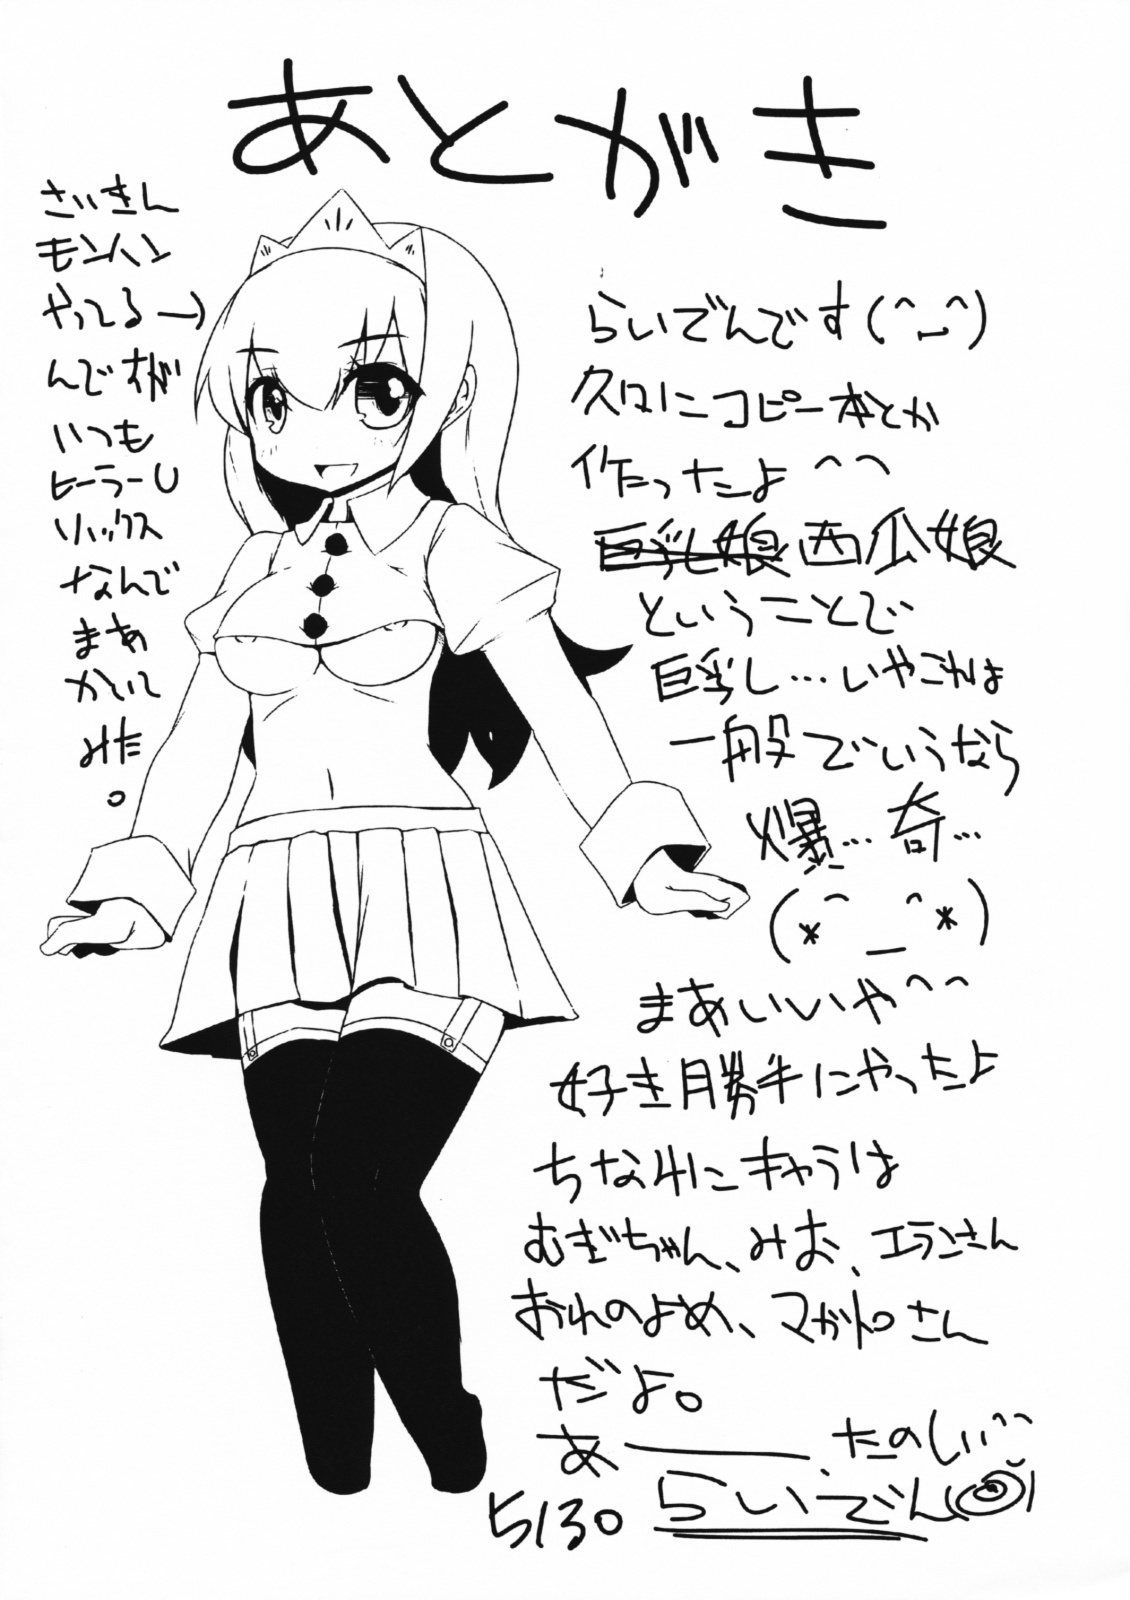 あとがき
さいきん
モンハン
やってる→
んですが
いつも
ヒーラーU
ソックス
なんで
まあ
かいて
みた
。
らいでんです(^_^)
久々にコピー本とか
作ったよ^^
巨乳娘西瓜娘
ということで
巨乳し…いやこれは
一般でいうなら
爆…奇…
(*^_^*)
まあいいや^^
好き勝手にやったよ
ちなみにキャラは
むぎちゃん、みお、エランさん
おれのよめ、マガトロさん
だよ。
あ――――、たのしい^^
5/30 らいでん